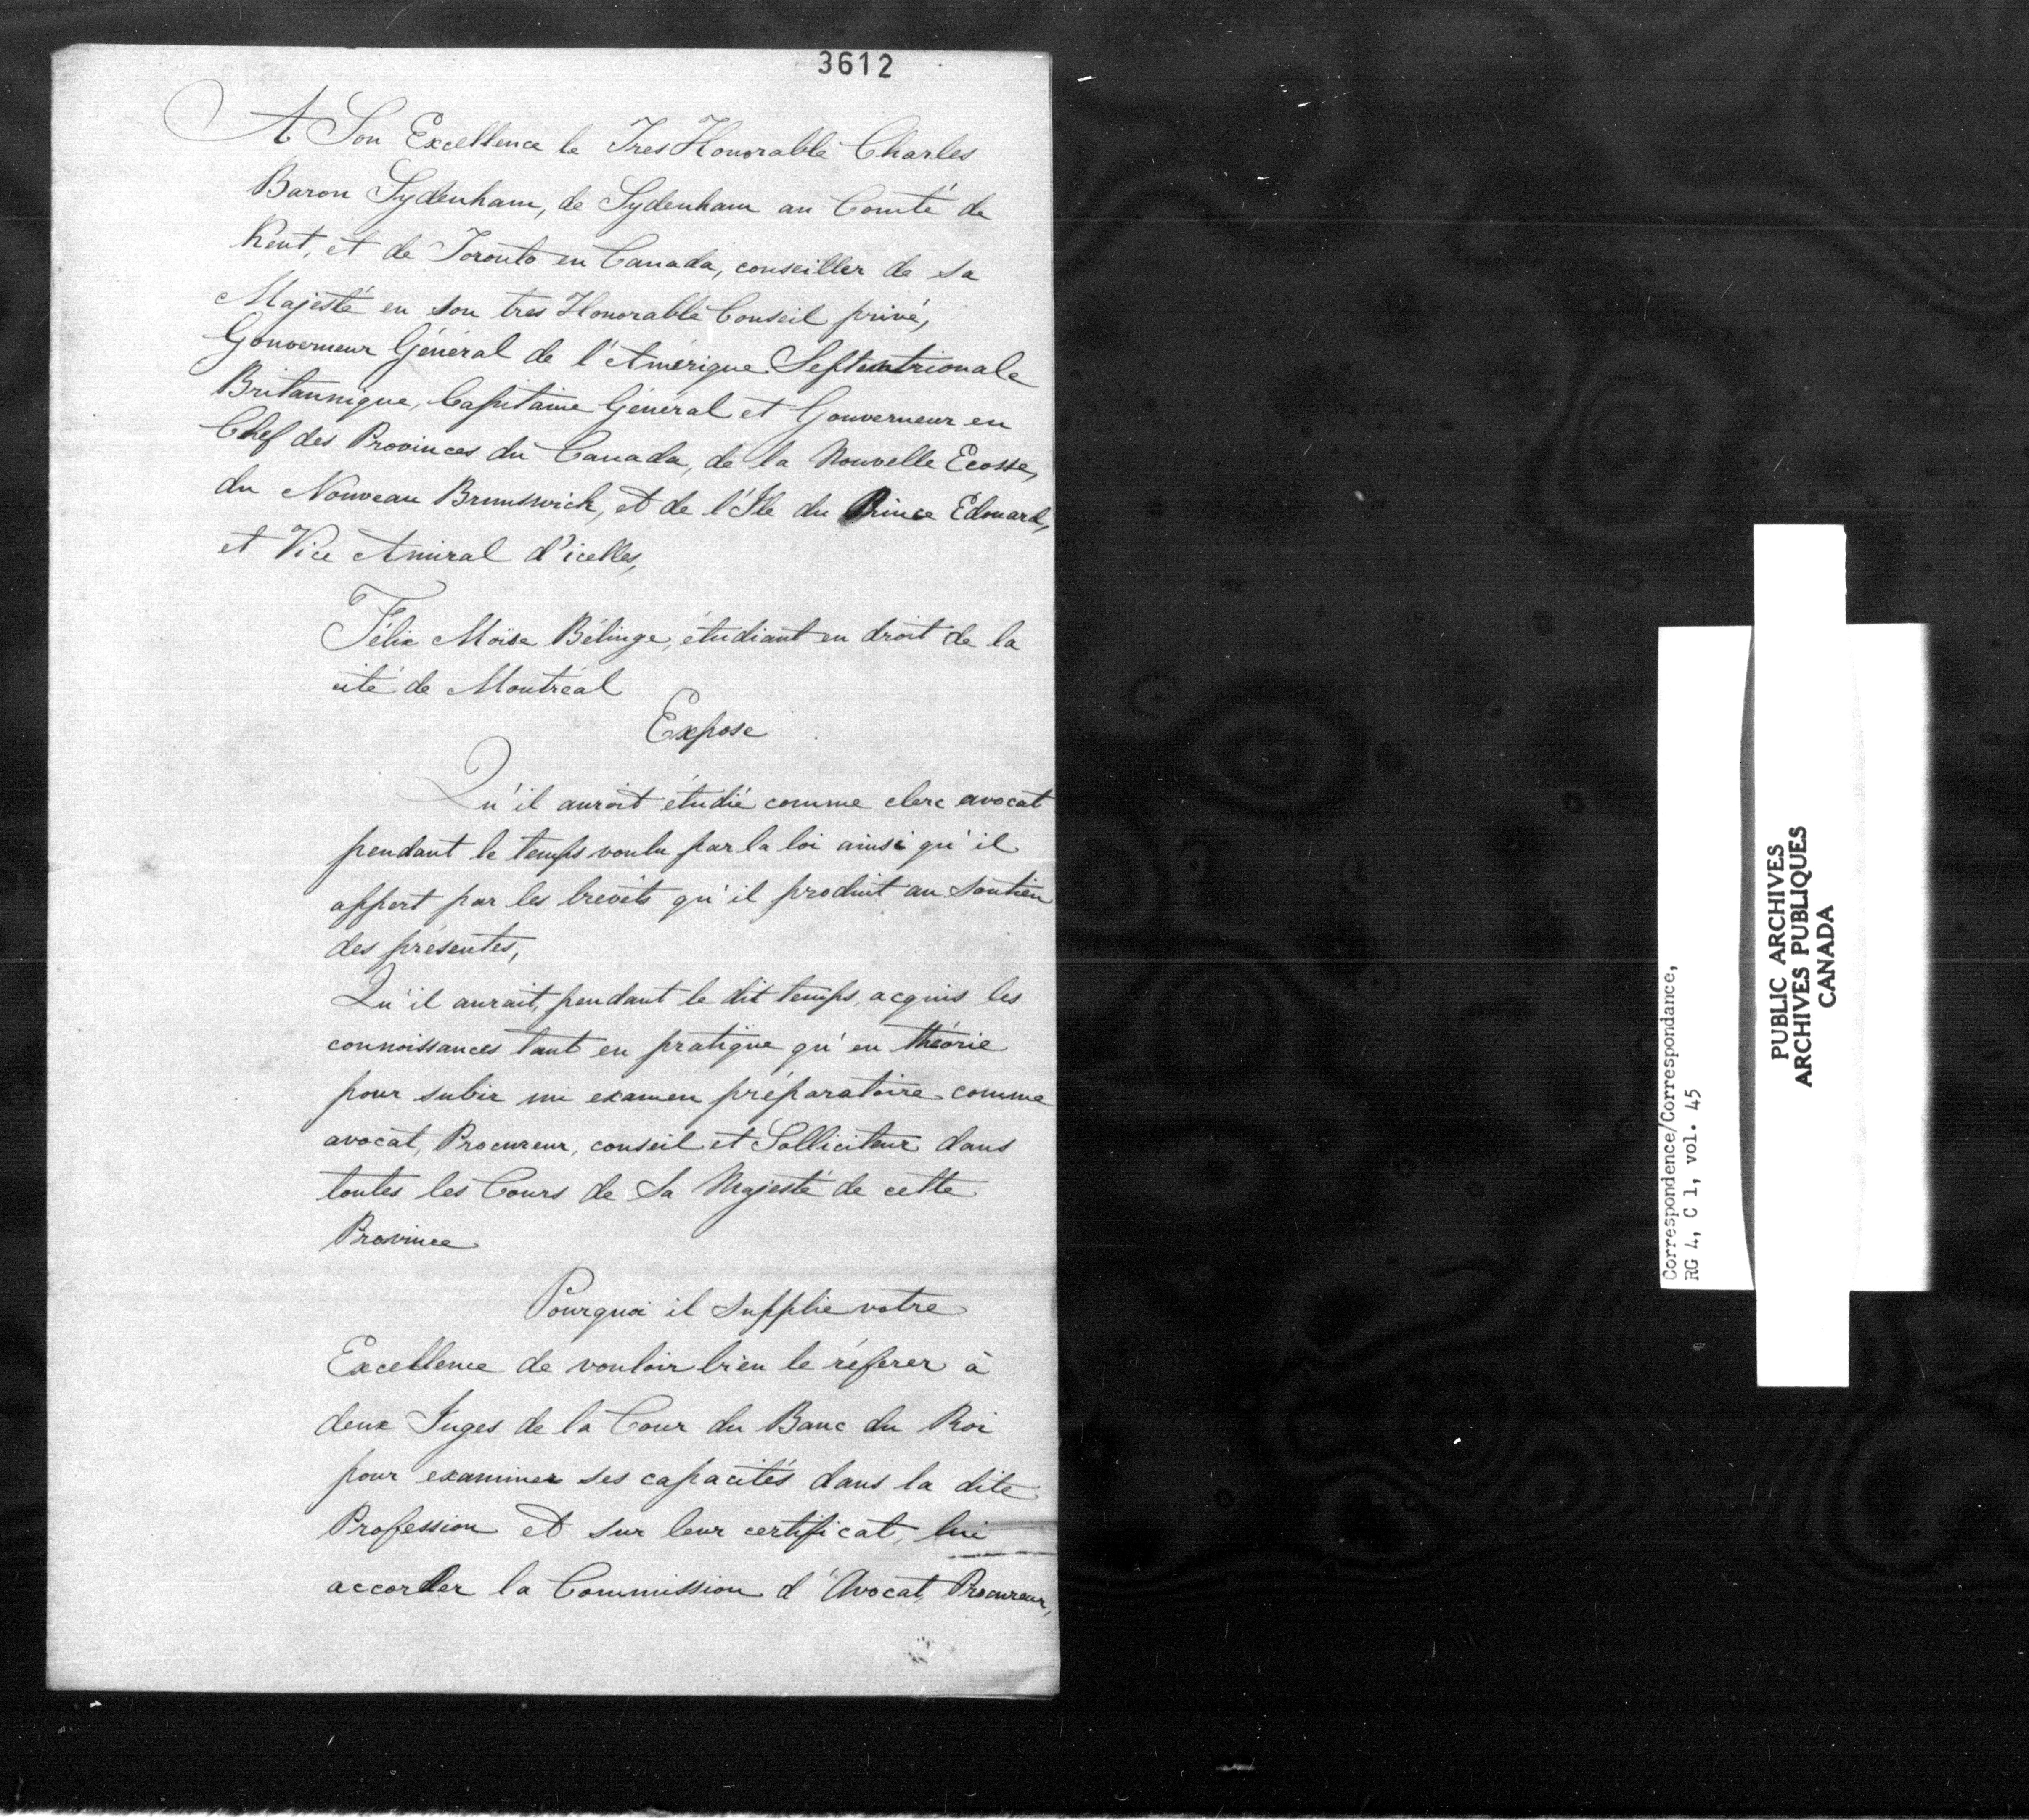 3612
A Son Excellence le Tres Honorable Charles
Baron Sydenham, de Sydenham au Comté de
Kent, et de Toronto en Canada, conseiller de sa
Majesté en son très Honorable Conseil privé,
Gouverneur Général de l'Amérique Septentrionale
Britannique, Capitaine Général et Gouverneur en
Chef des Provinces du Canada, de la Nouvelle Ecosse,
du Nouveau Brunswick, et de l'Ile du Prince Edouard,
et Vice Amiral d'icelles,
Félix Moïse Bélinge, étudiant en droit de la
cité de Montréal
Expose
Qu'il auroit étudié comme clerc avocat
pendant le temps voulu par la loi ainsi qu'il
appert par les brevets qu'il produit au soutien
des présentes,
Qu'il aurait, pendant le dit temps, acquis les
connoissances tant en pratique qu'en théorie
pour subir un examen préparatoire comme
avocat, Procureur, conseil et Solliciteur dans
toutes les Cours de Sa Majesté de cette
Province
Pourquoi il supplie votre
Excellence de vouloir bien le réferer à
deux Juges de la Cour du Banc du Roi
pour examiner ses capacités dans la dite
Profession et sur leur certificat, lui
accorder la Commission d'Avocat, Procureur,
Correspondence/Correspondance,
RG 4, C 1, vol. 45
PUBLIC ARCHIVES
ARCHIVES PUBLIQUES
CANADA